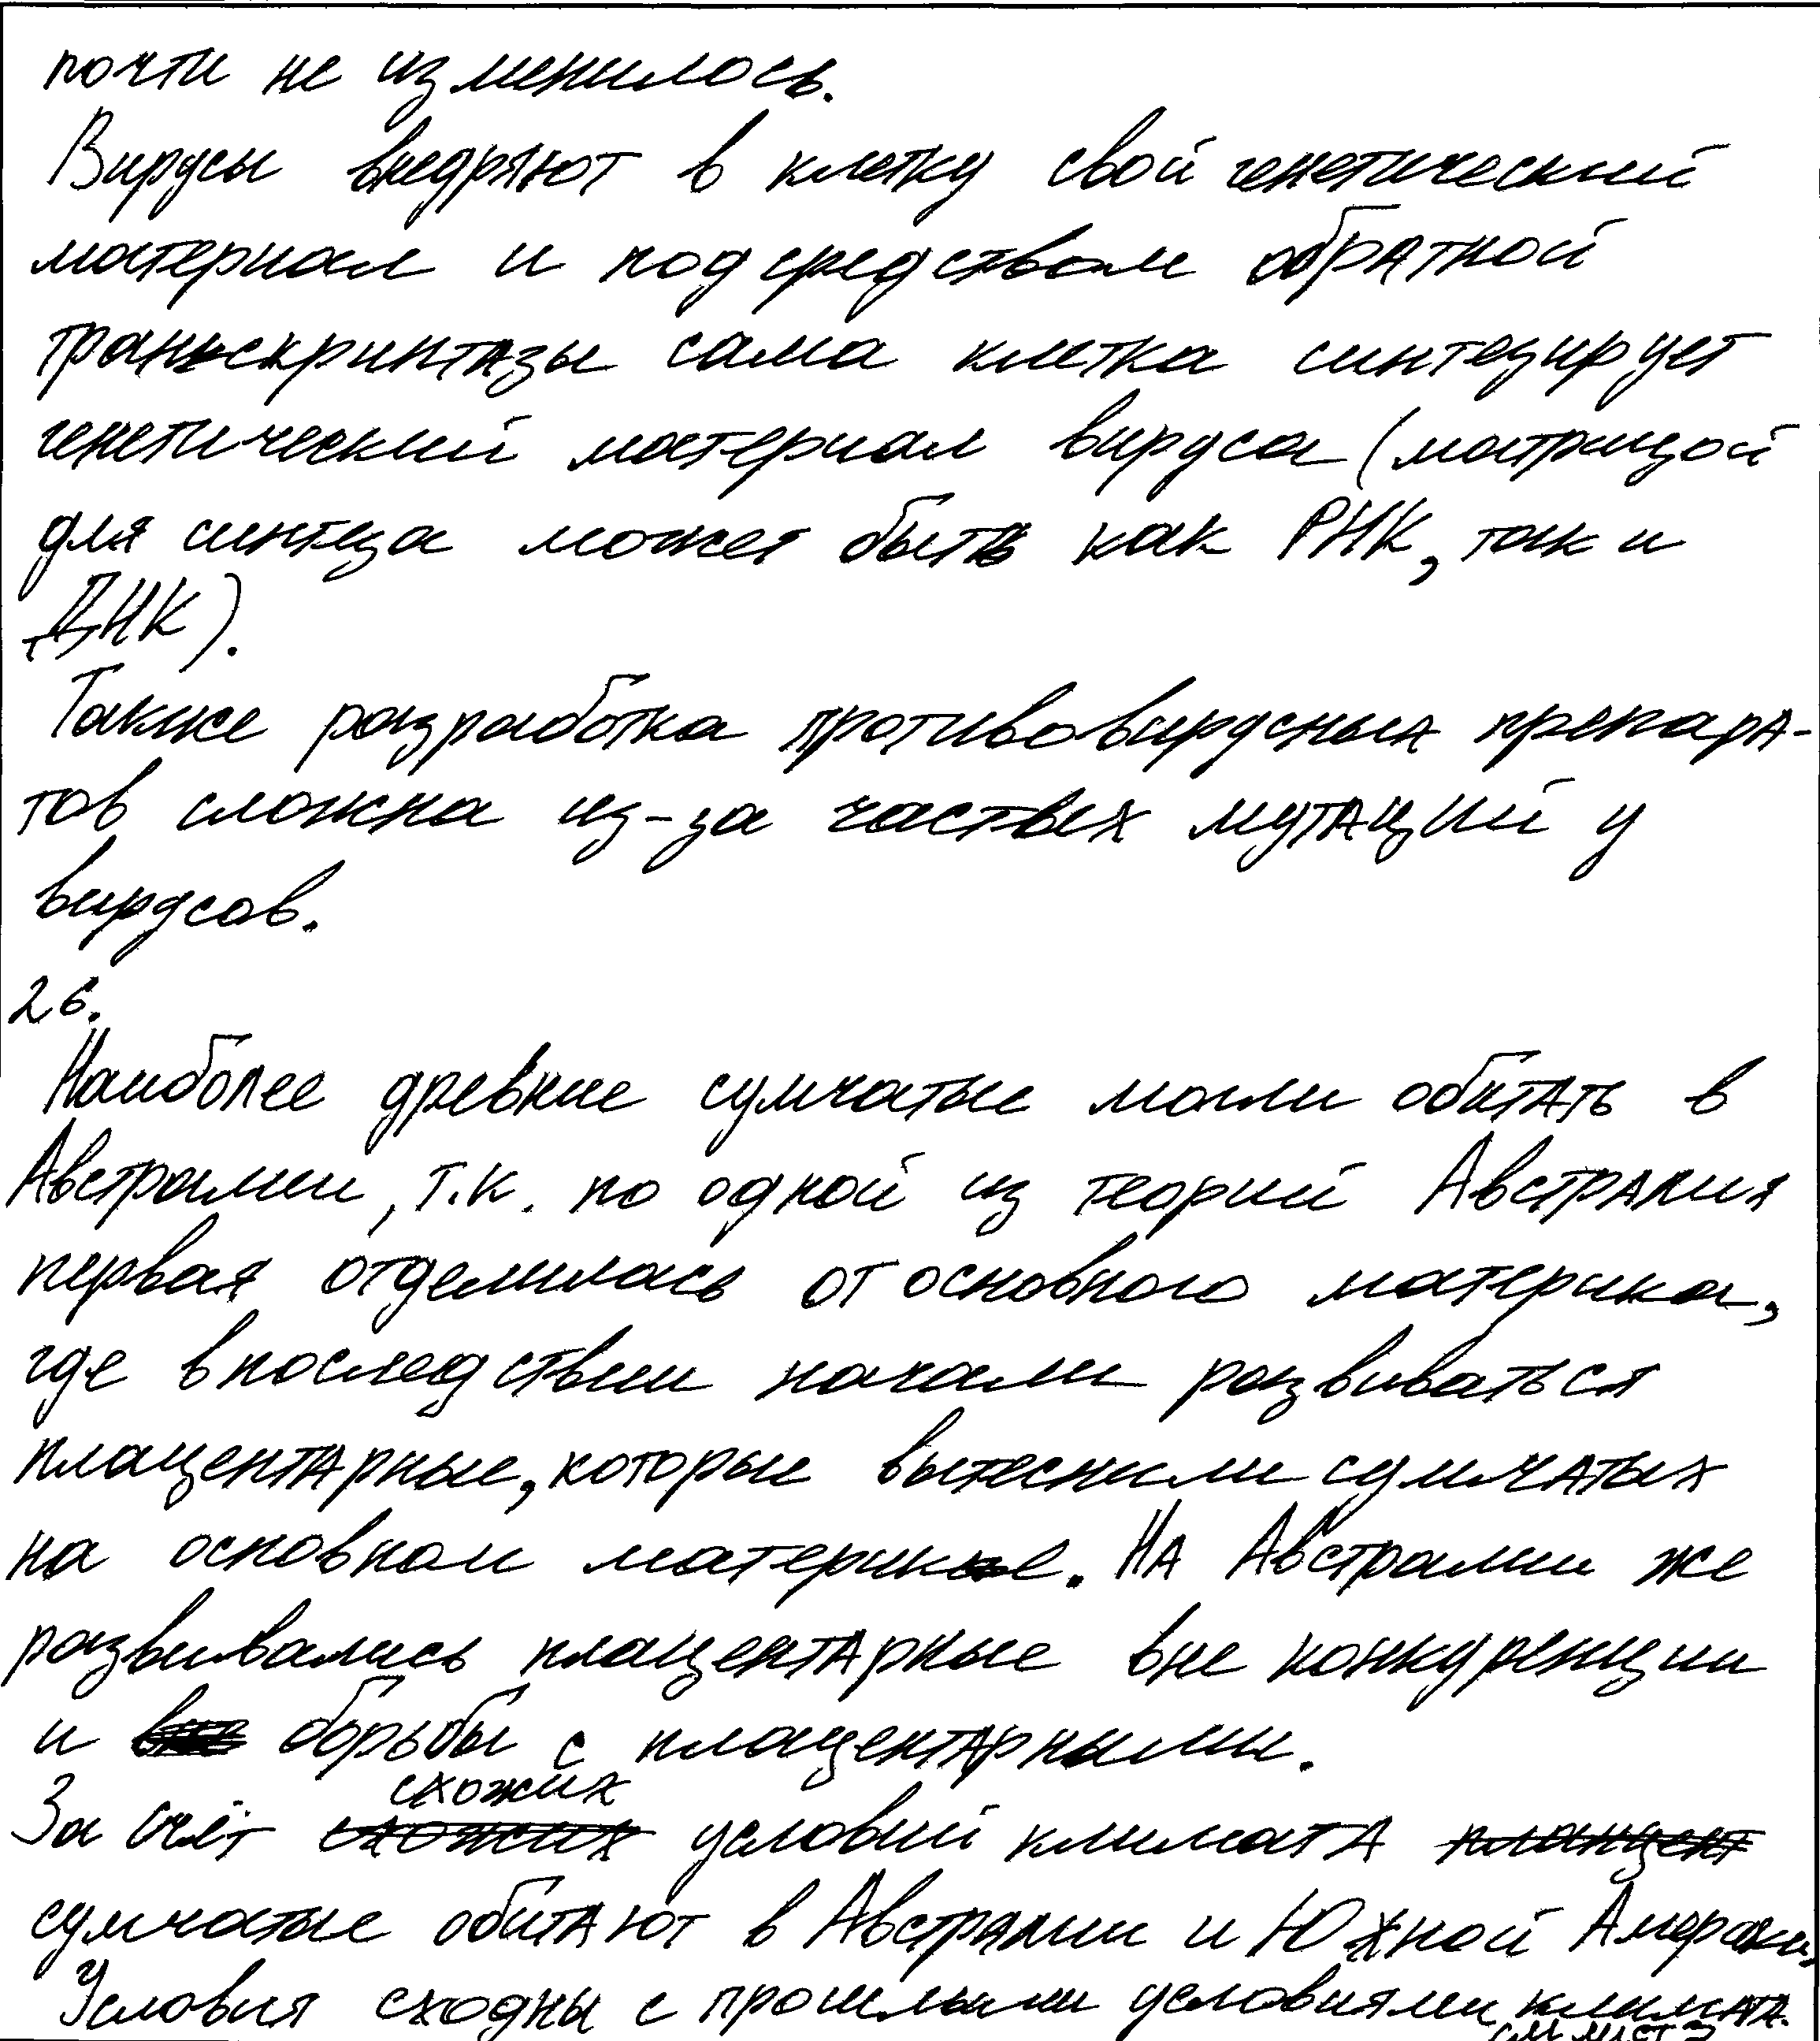 почти не изменилось.
Вирусы внедряют в клетку свой генетический
материал и под средством обратной
транскриптазы сама клетка синтезирует
генетический материал вируса (матрицой
для синтеза может быть как РНК, так и
ДНК).
Также разработка противовирусных препара-
тов сложна из-за частых мутаций у
вирусов.
26.
Наиболее древние сумчатые могли обитать в
Австралии, т.к. по одной из теорий Австралия
первая отделилась от основного материка,
где впоследствии начали развиваться
плацентарные, которые вытеснили сумчатых
на основном материке. На Австралии же
развивались плацентарные вне конкуренции
и борьбы с плацентарными.
За счёт схожих условий климата
сумчатые обитают в Австралии и Южной Америки.
Условия сходны с прошлыми условиями климата.
см лист 3